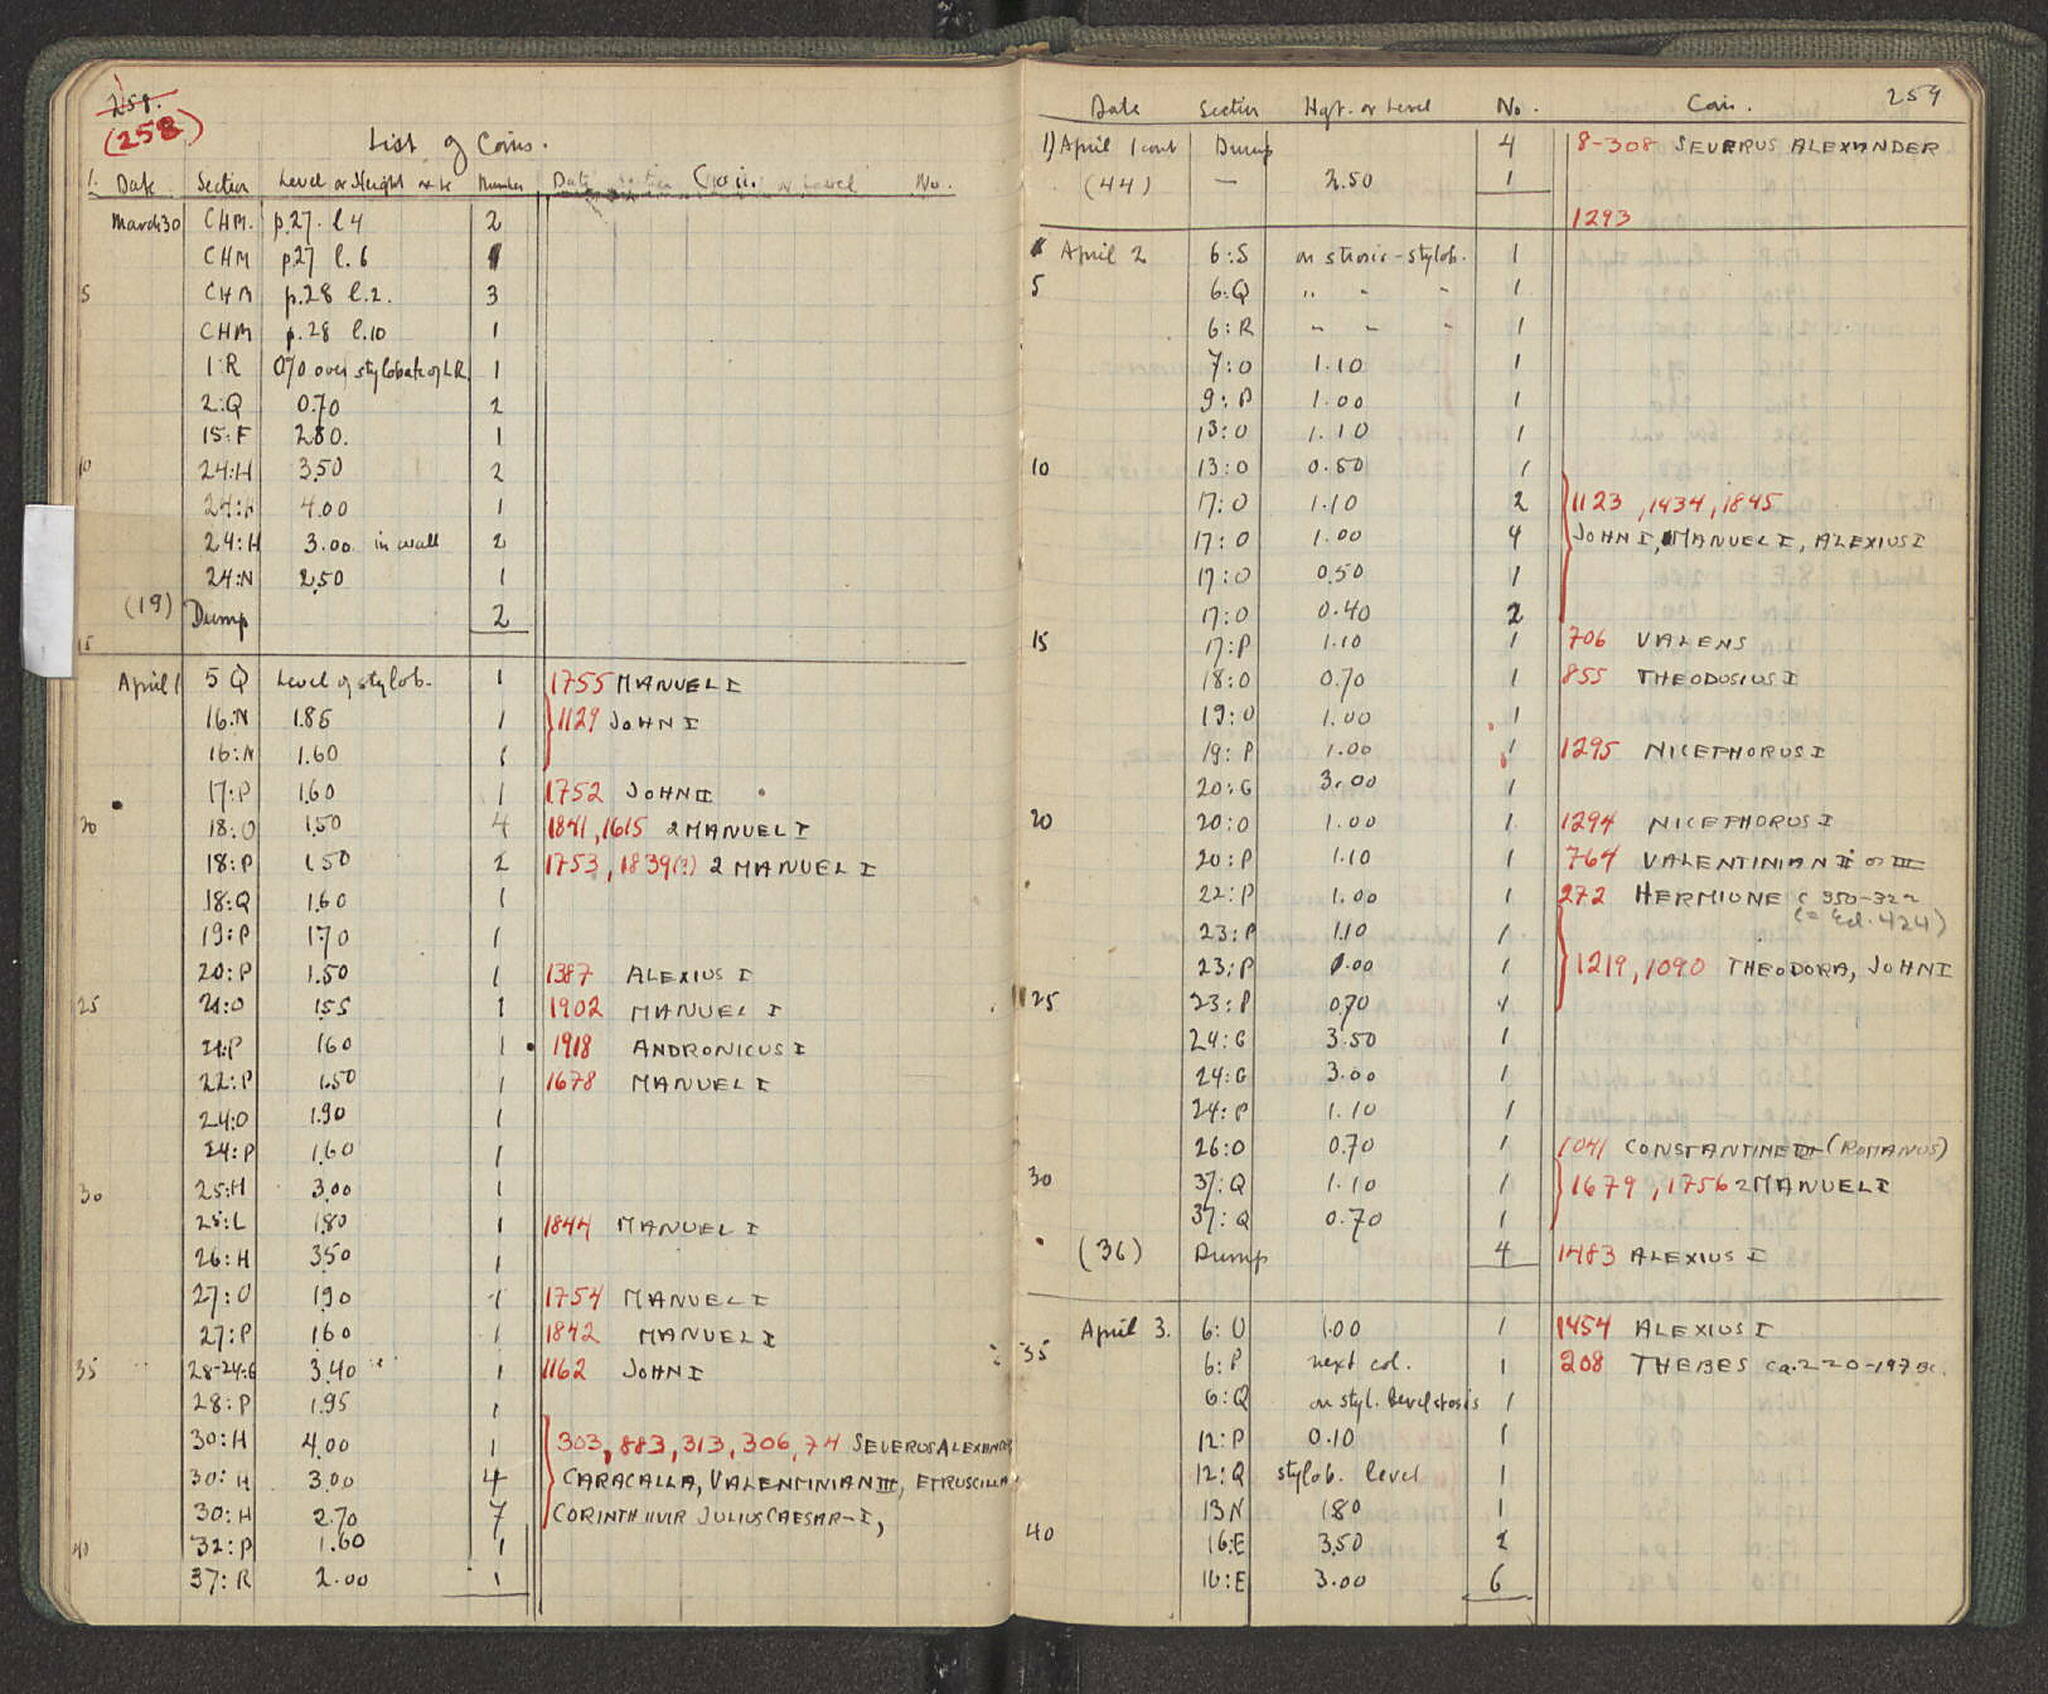 258.
(258)
List of Coins.
1. Date Section Level or Height Number Coin.
March 30 CHM. p.27. l 4 2
CHM p.27 l. 6 1
5 CHM p.28 l.2. 3
CHM p.28 l.10 1
1:R 0.70 over stylobate of LR. 1
2:Q 0.70 2
15:F 2.80. 1
10 24:H 3.50 2
24:H 4.00 1
24:H 3.00 in wall 2
24:N 2.50 1
(19) Dump 2
15
April 1 5 Q Level of stylob. 1 1755 MANUEL I
16:N 1.85 1 1129 JOHN I
16:N 1.60 1
17:P 1.60 1 1752 JOHN II
20 18:O 1.50 4 1841, 1615 2 MANUEL I
18:P 1.50 2 1753, 1839(?) 2 MANUEL I
18:Q 1.60 1
19:P 1.70 1
20:P 1.50 1 1387 ALEXIUS I
25 21:O 1.55 1 1902 MANUEL I
21:P 1.60 1 1918 ANDRONICUS I
22:P 1.50 1 1678 MANUEL I
24:O 1.90 1
24:P 1.60 1
30 25:H 3.00 1
25:L 1.80 1 1844 MANUEL I
26:H 3.50 1
27:O 1.90 1 1754 MANUEL I
27:P 1.60 1 1842 MANUEL I
35 28-24:G 3.40 1 1162 JOHN I
28:P 1.95 1
30:H 4.00 1 303, 883, 313, 306, 74 SEVERUS ALEXANDER
30:H 3.00 4 CARACALLA, VALENTINIAN III, ETRUSCILLA
30:H 2.70 7 CORINTH IIVIR JULIUS CAESAR-I,
40 32:P 1.60 1
37:R 2.00 1
259
Date Section Hgt. or Level No. Coin.
1) April 1 cont Dump 4 8-308 SEVERUS ALEXANDER
(44) — 2.50 1
1293
April 2 6:S on stosis-stylob. 1
5 6:Q " - - 1
6:R - - - 1
7:O 1.10 1
9:P 1.00 1
13:O 1.10 1
10 13:O 0.50 1
17:O 1.10 2 1123, 1434, 1845
17:O 1.00 4 JOHN I, MANUEL I, ALEXIUS I
17:O 0.50 1
17:O 0.40 2
15 17:P 1.10 1 706 VALENS
18:O 0.70 1 855 THEODOSIUS I
19:O 1.00 1
19:P 1.00 1 1295 NICEPHORUS I
20:G 3.00 1
20 20:O 1.00 1 1294 NICEPHORUS I
20:P 1.10 1 764 VALENTINIAN II or III
22:P 1.00 1 272 HERMIONE c 350-322
(= Ed. 424)
23:P 1.10 1
23:P 1.00 1 1219, 1090 THEODORA, JOHN I
25 23:P 0.70 1
24:G 3.50 1
24:G 3.00 1
24:P 1.10 1
26:O 0.70 1 1041 CONSTANTINE VII (ROMANUS)
30 37:Q 1.10 1 1679, 1756 2 MANUEL I
37:Q 0.70 1
(36) Dump 4 1483 ALEXIUS I
April 3. 6:O 1.00 1 1454 ALEXIUS I
35 6:P next col. 1 208 THEBES ca. 220-197 BC.
6:Q on styl. level stosis 1
12:P 0.10 1
12:Q stylob. level 1
13 N 1.80 1
40 16:E 3.50 2
16:E 3.00 6